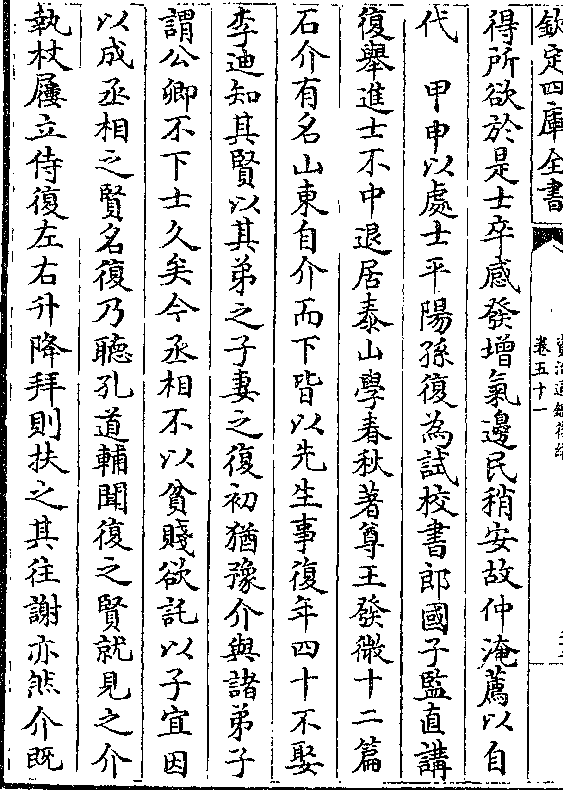 欽定四庫全書
卷五十一
得所欲於是士卒感發增氣邊民稍安故仲淹薦以自
代　甲申以處士平陽孫復為試校書郎國子監直講
復舉進士不中退居泰山學春秋著尊王發微十二篇
石介有名山東自介而下皆以先生事復年四十不娶
李迪知其賢以其弟之子妻之復初猶豫介與諸弟子
謂公卿不下士久矣今丞相不以貧賤欲託以子宜因
以成丞相之賢名復乃聽孔道輔聞復之賢就見之介
執杖屨立侍復左右升降拜則扶之其往謝亦然介既